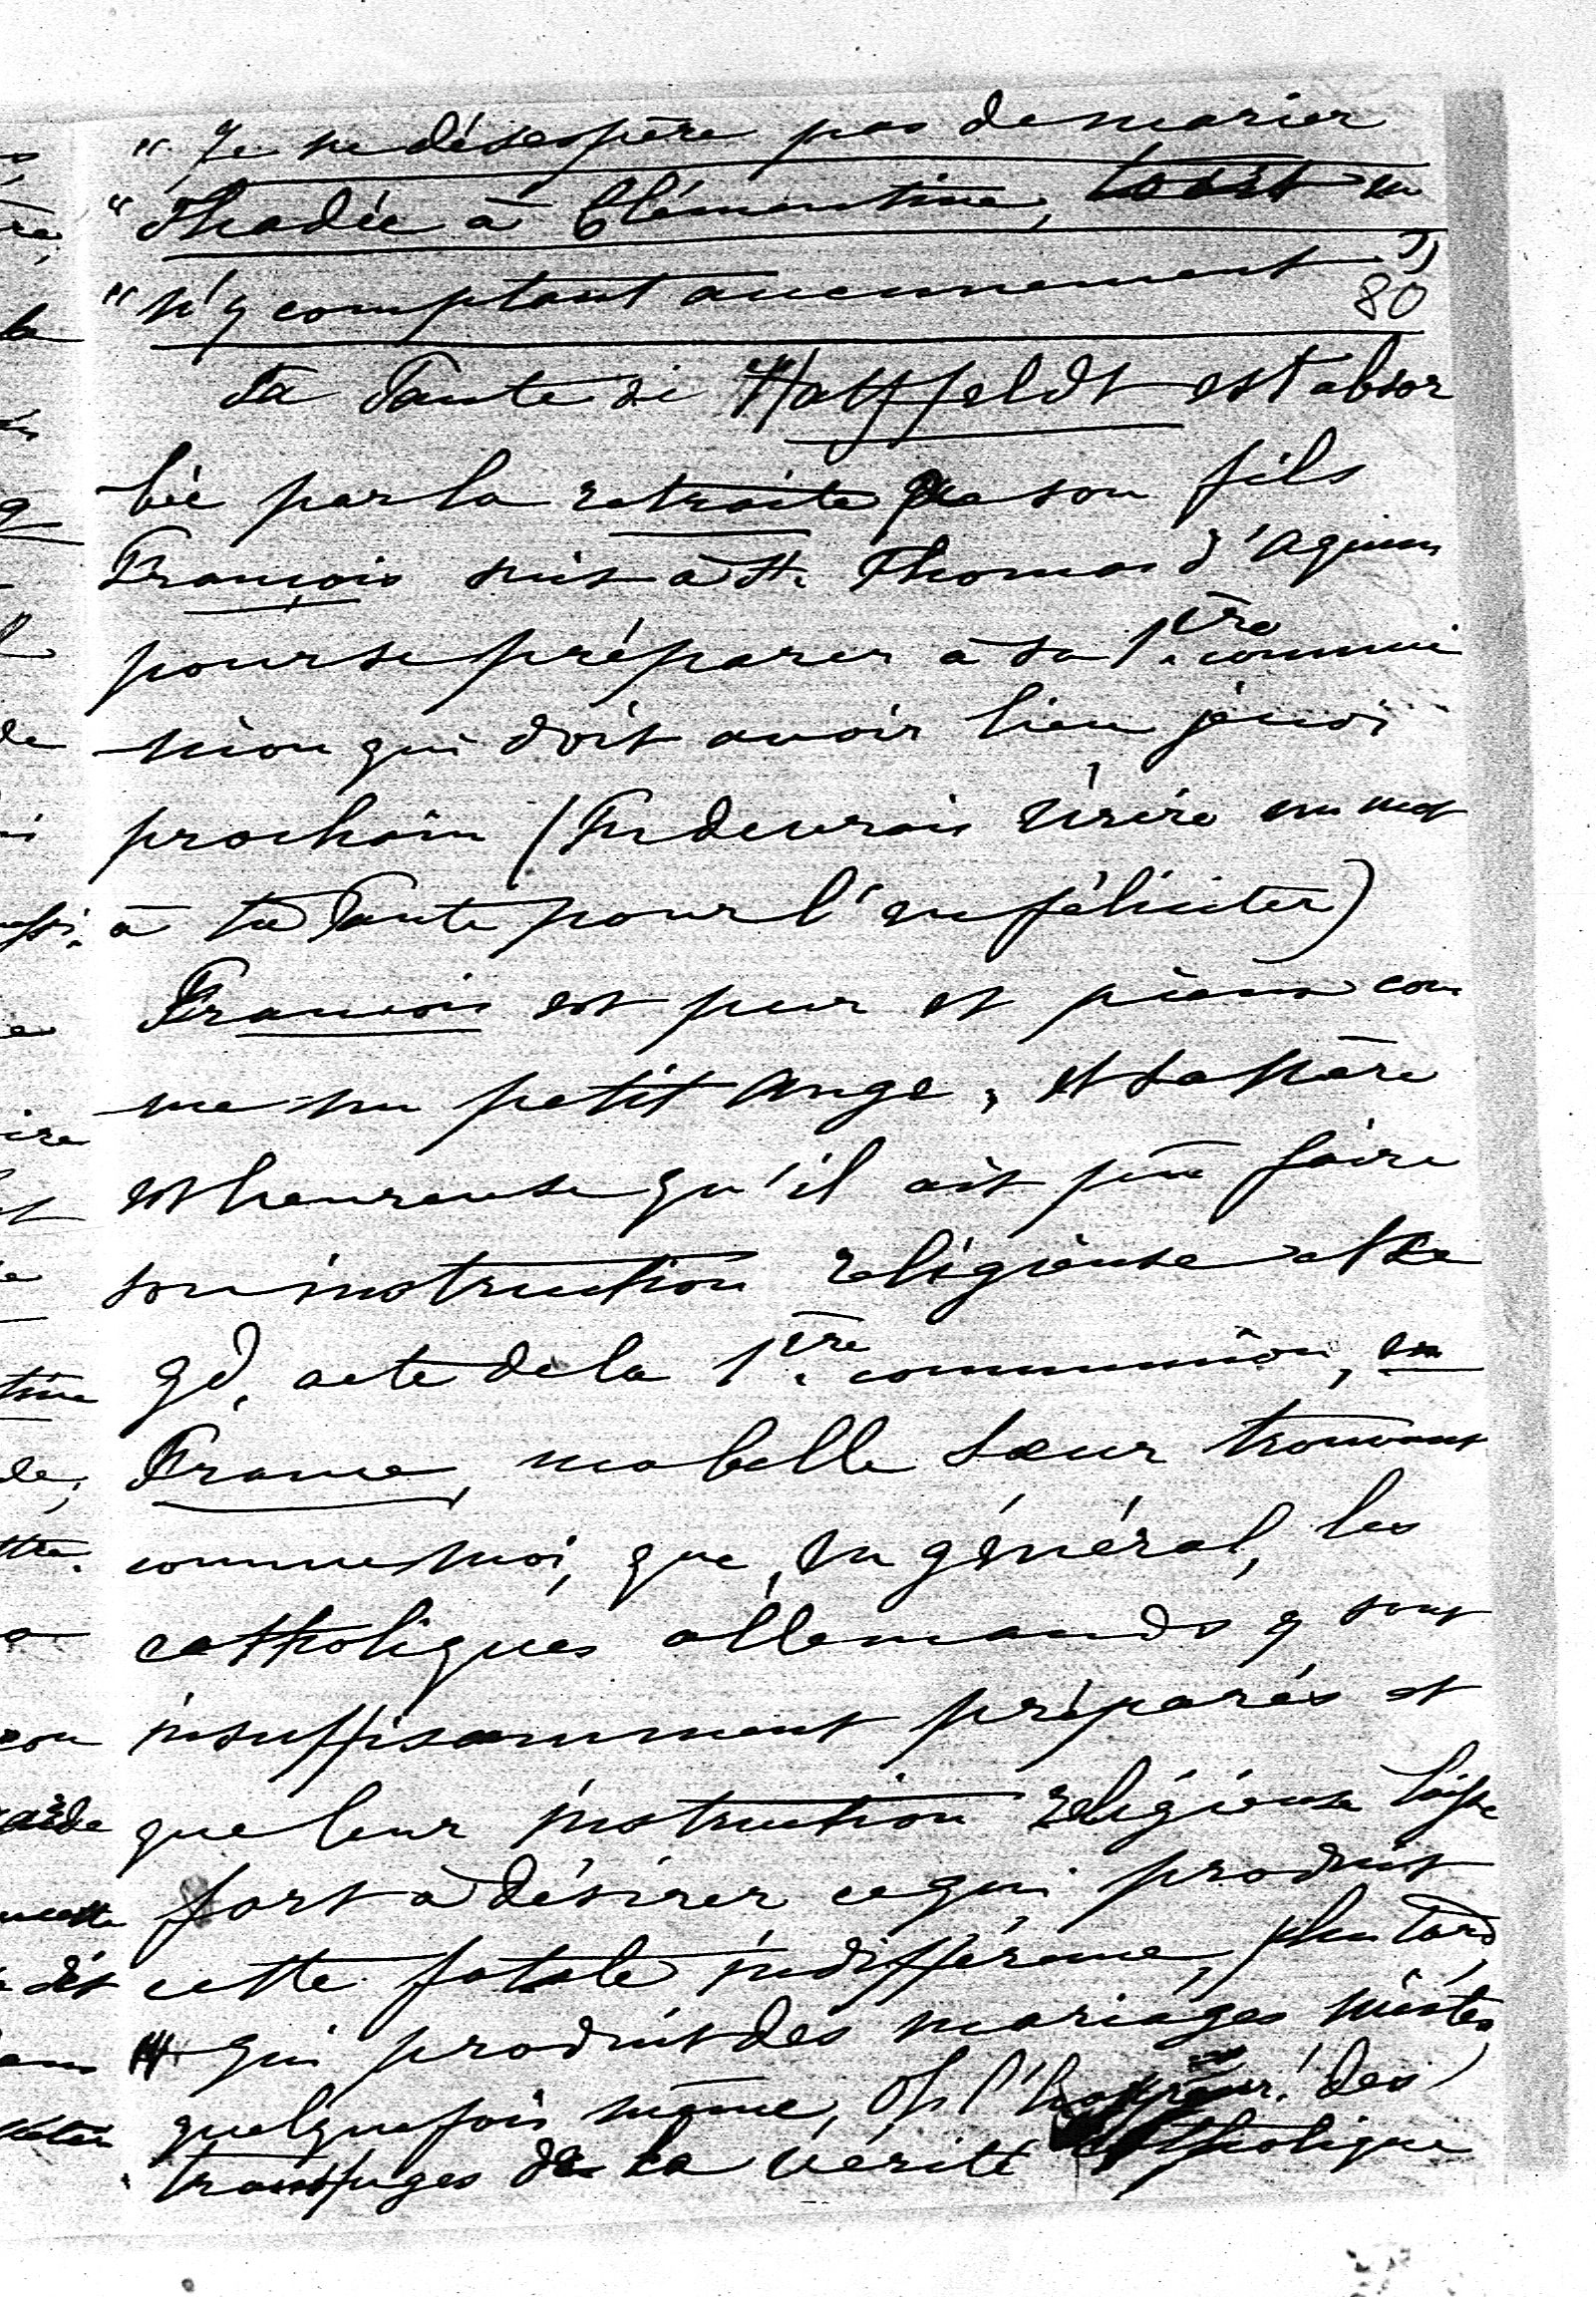 " Je ne désespère pas de marier
" Thadée à Clémentine, tout en
" n'y comptant aucunement "
80
Ta Tante de Hatzfeldt est absor
bée par la retraite que son fils
François suit à St. Thomas d'Aquin
pour se préparer à sa 1ère commu
nion qui doit avoir lieu jeudi
prochain (Tu devrais écrire un mot
à ta Tante pour l'en féliciter)
François est pur et pieux com
me un petit ange, et sa mère
est heureuse qu'il ait pu faire
son instruction religieuse et le
gd. acte de la 1ère communion, en
France, ma belle soeur trouvant
comme moi, que, en général, les
catholiques allemands y sont
insuffisamment préparés et
que leur instruction religieuse laisse
fort à désirer ce qui produit
cette fatale indifférence, plus tard,
qui produit des mariages mixtes
quelquefois même, Oh l'horreur! des
transfuges de la vérité catholique